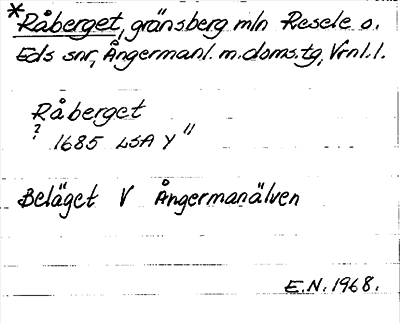 *Råberget, gränsberg mln Resele o.
Eds snr, Ångermanl. m. doms.tg, Vrnl. l.
Råberget
? 1685 LSA Y 11
Beläget V Ångermanälven
E.N. 1968.